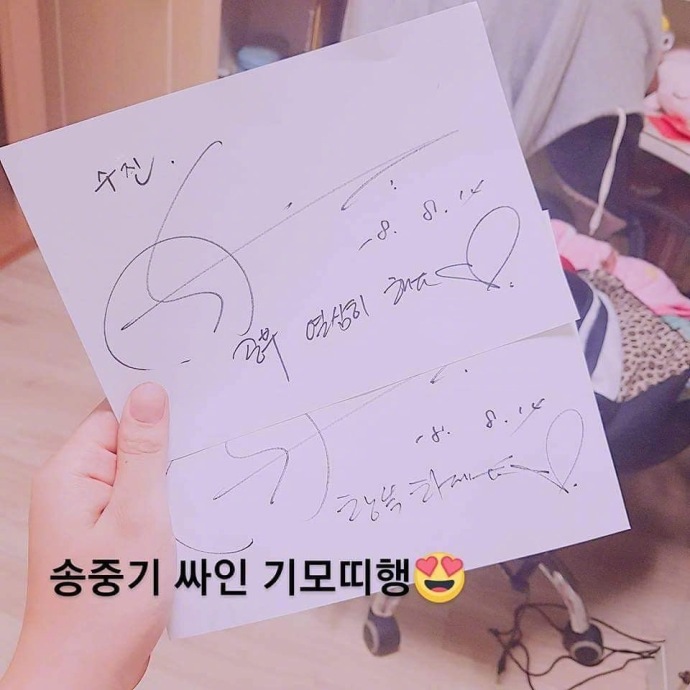 수진.
-8. 8. 14
공부 열심히 해요
-8. 8. 14
행복하세요
송중기 싸인 기모띠행😍